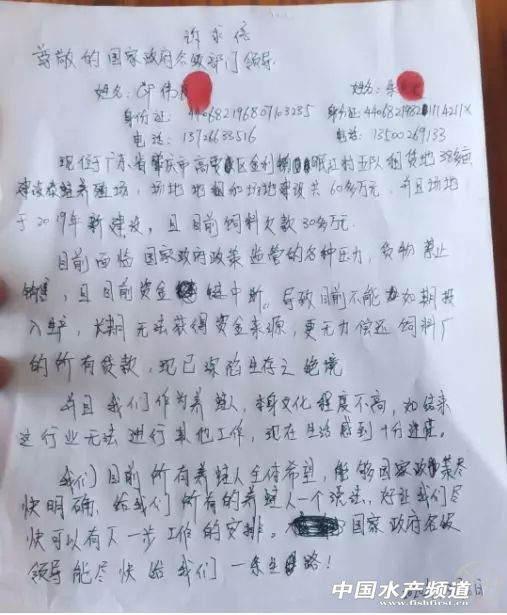 诉求信
尊敬的国家政府各级部门领导
姓名:邝伟 姓名:
身份证:440682196807103235 身份证:
电话:13726633516 电话:13500269133
现位于广东省肇庆市高要区金利 村五队租赁地38亩
建设养蛙养殖场,场地地租和场地建设共60多万元,并且场地
于2019年新建设,且目前饲料欠款30多万元.
目前面临国家政府政策监管的各种压力,货物禁止
销售,且目前资金链中断。导致目前不能如期投
入生产,长期无法获得资金来源,更无力偿还饲料厂
的所有货款,现已深陷生存之绝境
并且我们作为养蛙人,本身文化程度不高,如结束
这行业无法进行其他工作,现在生活感到十分迷茫。
我们目前所有养蛙人全体希望,能够国家政策尽
快明确,给我们所有的养蛙人一个说法,好让我们尽
快可以有下一步工作的安排。国家政府各级
领导能尽快给我们一条生路!
日
中国水产频道
www.fishfirst.cn